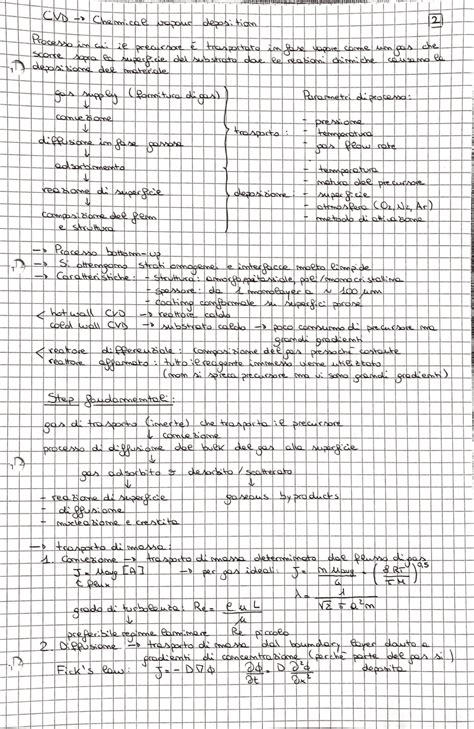 CVD → Chemical vapour deposition
2
Processo in cui il precursore è trasportato in fase vapore come un gas che
scorre sopra la superficie del substrato dove le reazioni chimiche causano la
deposizione del materiale
gas supply (fornitura di gas)
↓
convezione
↓
diffusione in fase gassosa
↓
adsorbimento
↓
reazione di superficie
↓
composizione del film
e struttura
Parametri di processo:
trasporto : - pressione
- temperatura
- gas flow rate
deposizione - temperatura
- natura del precursore
- superficie
- atmosfera (O2, N2, Ar)
- metodo di attivazione
→ Processo bottom-up
→ Si ottengono strati omogenei e interfacce molto limpide
→ Caratteristiche : - struttura : amorfa/epitassiale, poli/monocristallina
- spessore : da 1 monolayer a ~ 100 μm
- coating conformale su superfici porose
< hot wall CVD → reattore caldo
cold wall CVD → substrato caldo → poco consumo di precursore ma
grandi gradienti
< reattore differenziale : composizione del gas pressoché costante
reattore affamato : tutto il reagente immesso viene utilizzato
(non si spreca precursore ma vi sono grandi gradienti)
Step fondamentali :
gas di trasporto (inerte) che trasporta il precursore
↓ convezione
processo di diffusione dal bulk del gas alla superficie
↓
gas adsorbito ⇄ desorbito / scatterato
↓ ↓
- reazione di superficie gaseous byproducts
- diffusione
- nucleazione e crescita
→ trasporto di massa :
1. Convezione → trasporto di massa determinato dal flusso di gas
J = [A] → per gas ideali : J =
flux λ =
grado di turbolenza : Re = ρ u L / μ
↓
preferibile regime laminare Re piccolo
2. Diffusione → trasporto di massa dal boundary layer dovuto a
gradienti di concentrazione (perché parte del gas si
deposita
Fick's law : J = -D∇ϕ ∂ϕ/∂t = D ∂²ϕ/∂x²